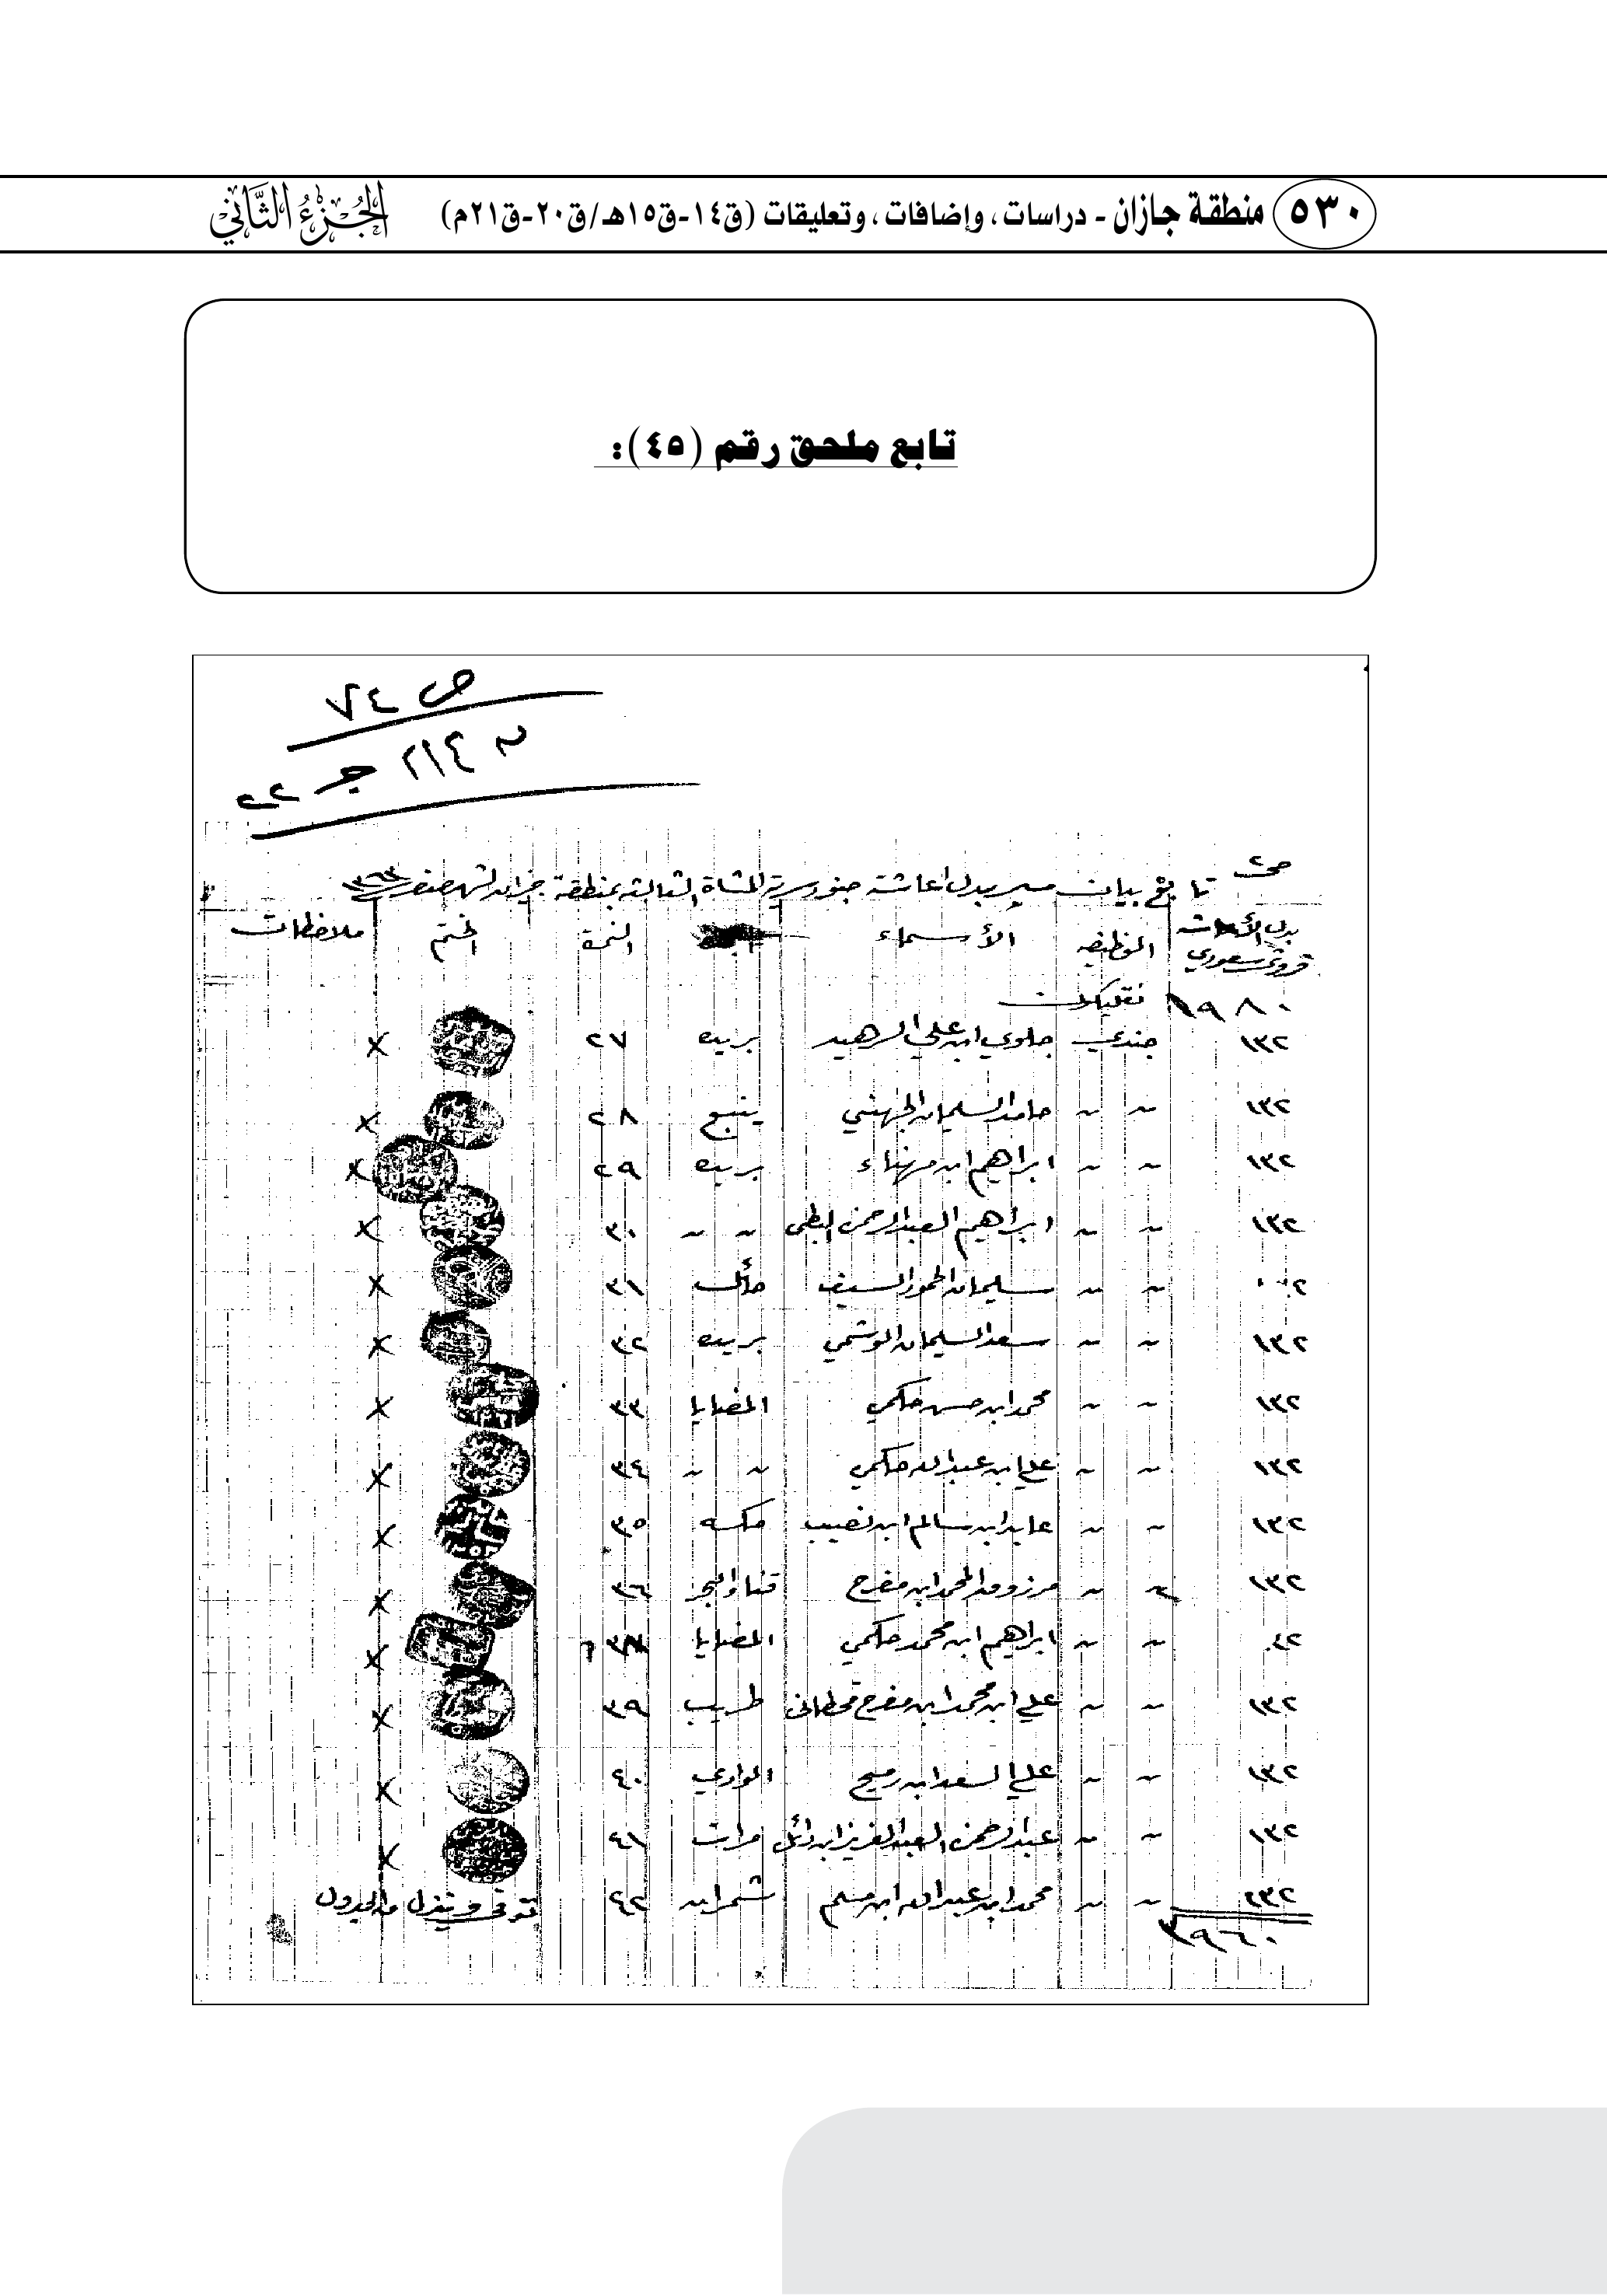 ٥٣٠ منطقة جازان - دراسات، وإضافات، وتعليقات (ق١٤-ق١٥هـ/ق٢٠-ق٢١م) الجزء الثاني
تابع ملحق رقم (٤٥):
ص ٧٤
٢١٤ ج ٢٢
تابع بيان بدل اعاشة جنود سرية المشاة الثالثة بمنطقة جيزان لشهر صفر ١٣٦٣
بدل الأعاشه قروش سعودي الوظيفه الأسماء النمرة الختم ملاحظات
١٩٨٠
١٣٢ جندي جلوي ابن علي الرهيد بريده ٢٧ ×
١٣٢ " " حامد السليمان الجهني ينبع ٢٨ ×
١٣٢ " " ابراهيم ابن مهناء بريده ٢٩ ×
١٣٢ " " ابراهيم العبدالرحمن " " ٣٠ ×
" " سليمان الحمود السيف حائل ٣١ ×
١٣٢ " " سعد السليمان الوشمي بريده ٣٢ ×
١٣٢ " " محمد ابن حسن حكمي المضايا ٣٣ ×
١٣٢ " " علي ابن عبدالله حكمي " " ٣٤ ×
١٣٢ " " عابد ابن سالم ابن نصيب مكه ٣٥ ×
١٣٢ " " مرزوق المحمد ابن مفرح قناء والبحر ٣٦ ×
" " ابراهيم ابن محمد حكمي المضايا ×
١٣٢ " " علي ابن محمد ابن مفرح قحطاني طريب ٣٩ ×
١٣٢ " " علي السعد ابن رميح الوادي ٤٠ ×
١٣٢ " " عبدالرحمن العبدالعزيز ابن مرات ٤١ ×
١٣٢ " " محمد ابن عبدالله ابن مسلم شمران ٤٢ توفى وينزل من الجدول
٣٩٦٠